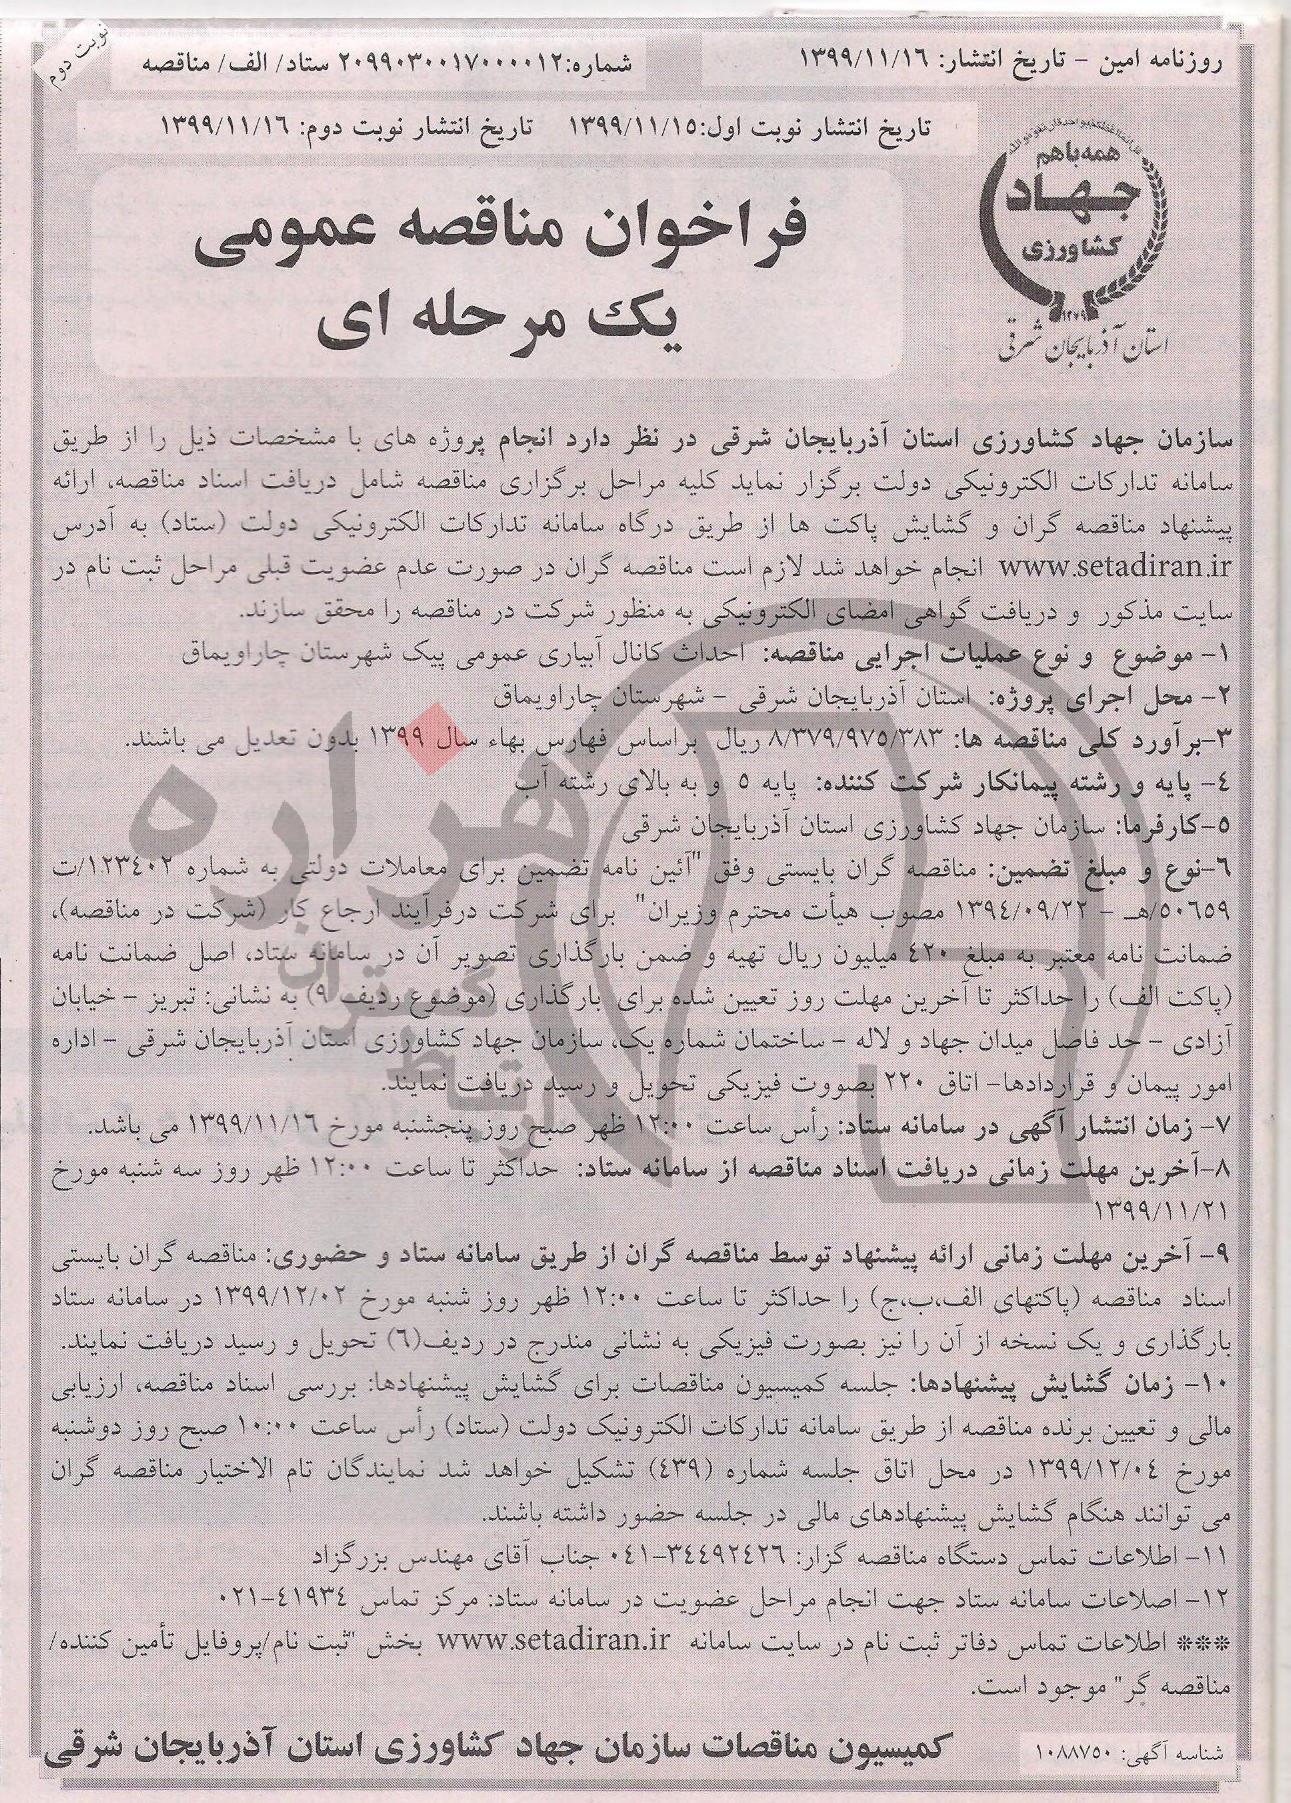 نوبت دوم
روزنامه امین - تاریخ انتشار: ۱۳۹۹/۱۱/۱۶
شماره:۲۰۹۹۰۳۰۰۱۷۰۰۰۰۱۲ ستاد/ الف/ مناقصه
تاریخ انتشار نوبت اول:۱۳۹۹/۱۱/۱۵ تاریخ انتشار نوبت دوم: ۱۳۹۹/۱۱/۱۶
همه با هم
جهاد
کشاورزی
۱۳۷۹
استان آذربایجان شرقی
فراخوان مناقصه عمومی
یک مرحله ای
سازمان جهاد کشاورزی استان آذربایجان شرقی در نظر دارد انجام پروژه های با مشخصات ذیل را از طریق
سامانه تدارکات الکترونیکی دولت برگزار نماید کلیه مراحل برگزاری مناقصه شامل دریافت اسناد مناقصه، ارائه
پیشنهاد مناقصه گران و گشایش پاکت ها از طریق درگاه سامانه تدارکات الکترونیکی دولت (ستاد) به آدرس
www.setadiran.ir انجام خواهد شد لازم است مناقصه گران در صورت عدم عضویت قبلی مراحل ثبت نام در
سایت مذکور و دریافت گواهی امضای الکترونیکی به منظور شرکت در مناقصه را محقق سازند.
۱- موضوع و نوع عملیات اجرایی مناقصه: احداث کانال آبیاری عمومی پیک شهرستان چاراویماق
۲- محل اجرای پروژه: استان آذربایجان شرقی - شهرستان چاراویماق
۳-برآورد کلی مناقصه ها: ۸/۳۷۹/۹۷۵/۳۸۳ ریال براساس فهارس بهاء سال ۱۳۹۹ بدون تعدیل می باشند.
۴- پایه و رشته پیمانکار شرکت کننده: پایه ۵ و به بالای رشته آب
۵-کارفرما: سازمان جهاد کشاورزی استان آذربایجان شرقی
۶-نوع و مبلغ تضمین: مناقصه گران بایستی وفق "آئین نامه تضمین برای معاملات دولتی به شماره ۱۲۳۴۰۲/ت
۵۰۶۵۹/هـ - ۱۳۹٤/۰۹/۲۲ مصوب هیأت محترم وزیران" برای شرکت درفرآیند ارجاع کار (شرکت در مناقصه)،
ضمانت نامه معتبر به مبلغ ۴۲۰ میلیون ریال تهیه و ضمن بارگذاری تصویر آن در سامانه ستاد، اصل ضمانت نامه
(پاکت الف) را حداکثر تا آخرین مهلت روز تعیین شده برای بارگذاری (موضوع ردیف ۹) به نشانی: تبریز - خیابان
آزادی - حد فاصل میدان جهاد و لاله - ساختمان شماره یک، سازمان جهاد کشاورزی استان آذربایجان شرقی - اداره
امور پیمان و قراردادها- اتاق ۲۲۰ بصووت فیزیکی تحویل و رسید دریافت نمایند.
۷- زمان انتشار آگهی در سامانه ستاد: رأس ساعت ۱۲:۰۰ ظهر صبح روز پنجشنبه مورخ ۱۳۹۹/۱۱/۱۶ می باشد.
۸-آخرین مهلت زمانی دریافت اسناد مناقصه از سامانه ستاد: حداکثر تا ساعت ۱۲:۰۰ ظهر روز سه شنبه مورخ
۱۳۹۹/۱۱/۲۱
۹- آخرین مهلت زمانی ارائه پیشنهاد توسط مناقصه گران از طریق سامانه ستاد و حضوری: مناقصه گران بایستی
اسناد مناقصه (پاکتهای الف،ب،ج) را حداکثر تا ساعت ۱۲:۰۰ ظهر روز شنبه مورخ ۱۳۹۹/۱۲/۰۲ در سامانه ستاد
بارگذاری و یک نسخه از آن را نیز بصورت فیزیکی به نشانی مندرج در ردیف(۶) تحویل و رسید دریافت نمایند.
۱۰- زمان گشایش پیشنهادها: جلسه کمیسیون مناقصات برای گشایش پیشنهادها: بررسی اسناد مناقصه، ارزیابی
مالی و تعیین برنده مناقصه از طریق سامانه تدارکات الکترونیک دولت (ستاد) رأس ساعت ۱۰:۰۰ صبح روز دوشنبه
مورخ ۱۳۹۹/۱۲/۰٤ در محل اتاق جلسه شماره (٤۳۹) تشکیل خواهد شد نمایندگان تام الاختیار مناقصه گران
می توانند هنگام گشایش پیشنهادهای مالی در جلسه حضور داشته باشند.
۱۱- اطلاعات تماس دستگاه مناقصه گزار: ۳٤٤۹۲٤۲۶-۰٤۱ جناب آقای مهندس بزرگزاد
۱۲- اصلاعات سامانه ستاد جهت انجام مراحل عضویت در سامانه ستاد: مرکز تماس ٤۱۹۳٤-۰۲۱
*** اطلاعات تماس دفاتر ثبت نام در سایت سامانه www.setadiran.ir بخش "ثبت نام/پروفایل تأمین کننده/
مناقصه گر" موجود است.
شناسه آگهی: ۱۰۸۸۷۵۰
کمیسیون مناقصات سازمان جهاد کشاورزی استان آذربایجان شرقی
هزاره